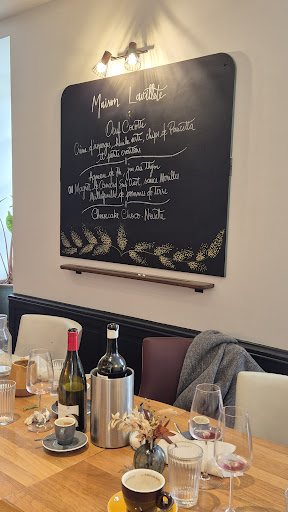 Maison Lavillette
Œuf Cocotte
Crème d'asperges, blanc, chips de Pancetta
et petits croûtons
Agneau de lait, jus au thym
ou Magret de Canard Sud Ouest, sauce Morilles
Millefeuille de pommes de terre
Cheesecake Choco-Noisette